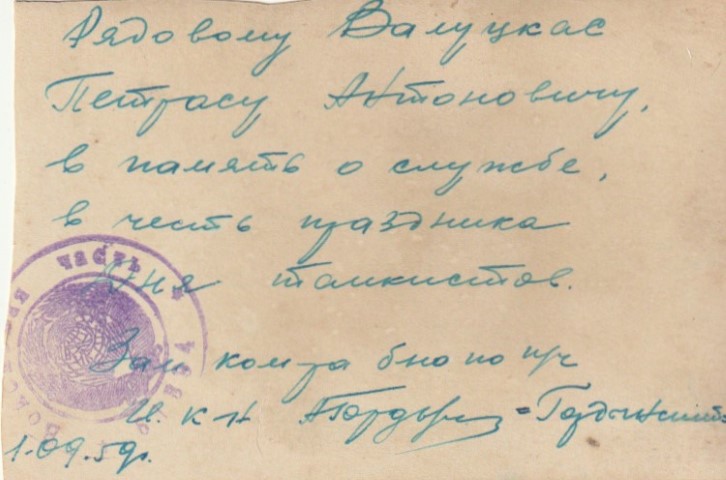 Рядовому Валуцкас
Петрасу Антоновичу,
в память о службе,
в честь праздника
Дня танкистов.
Зам ком-ра по п/ч
К-н
1.09.59г.
часть